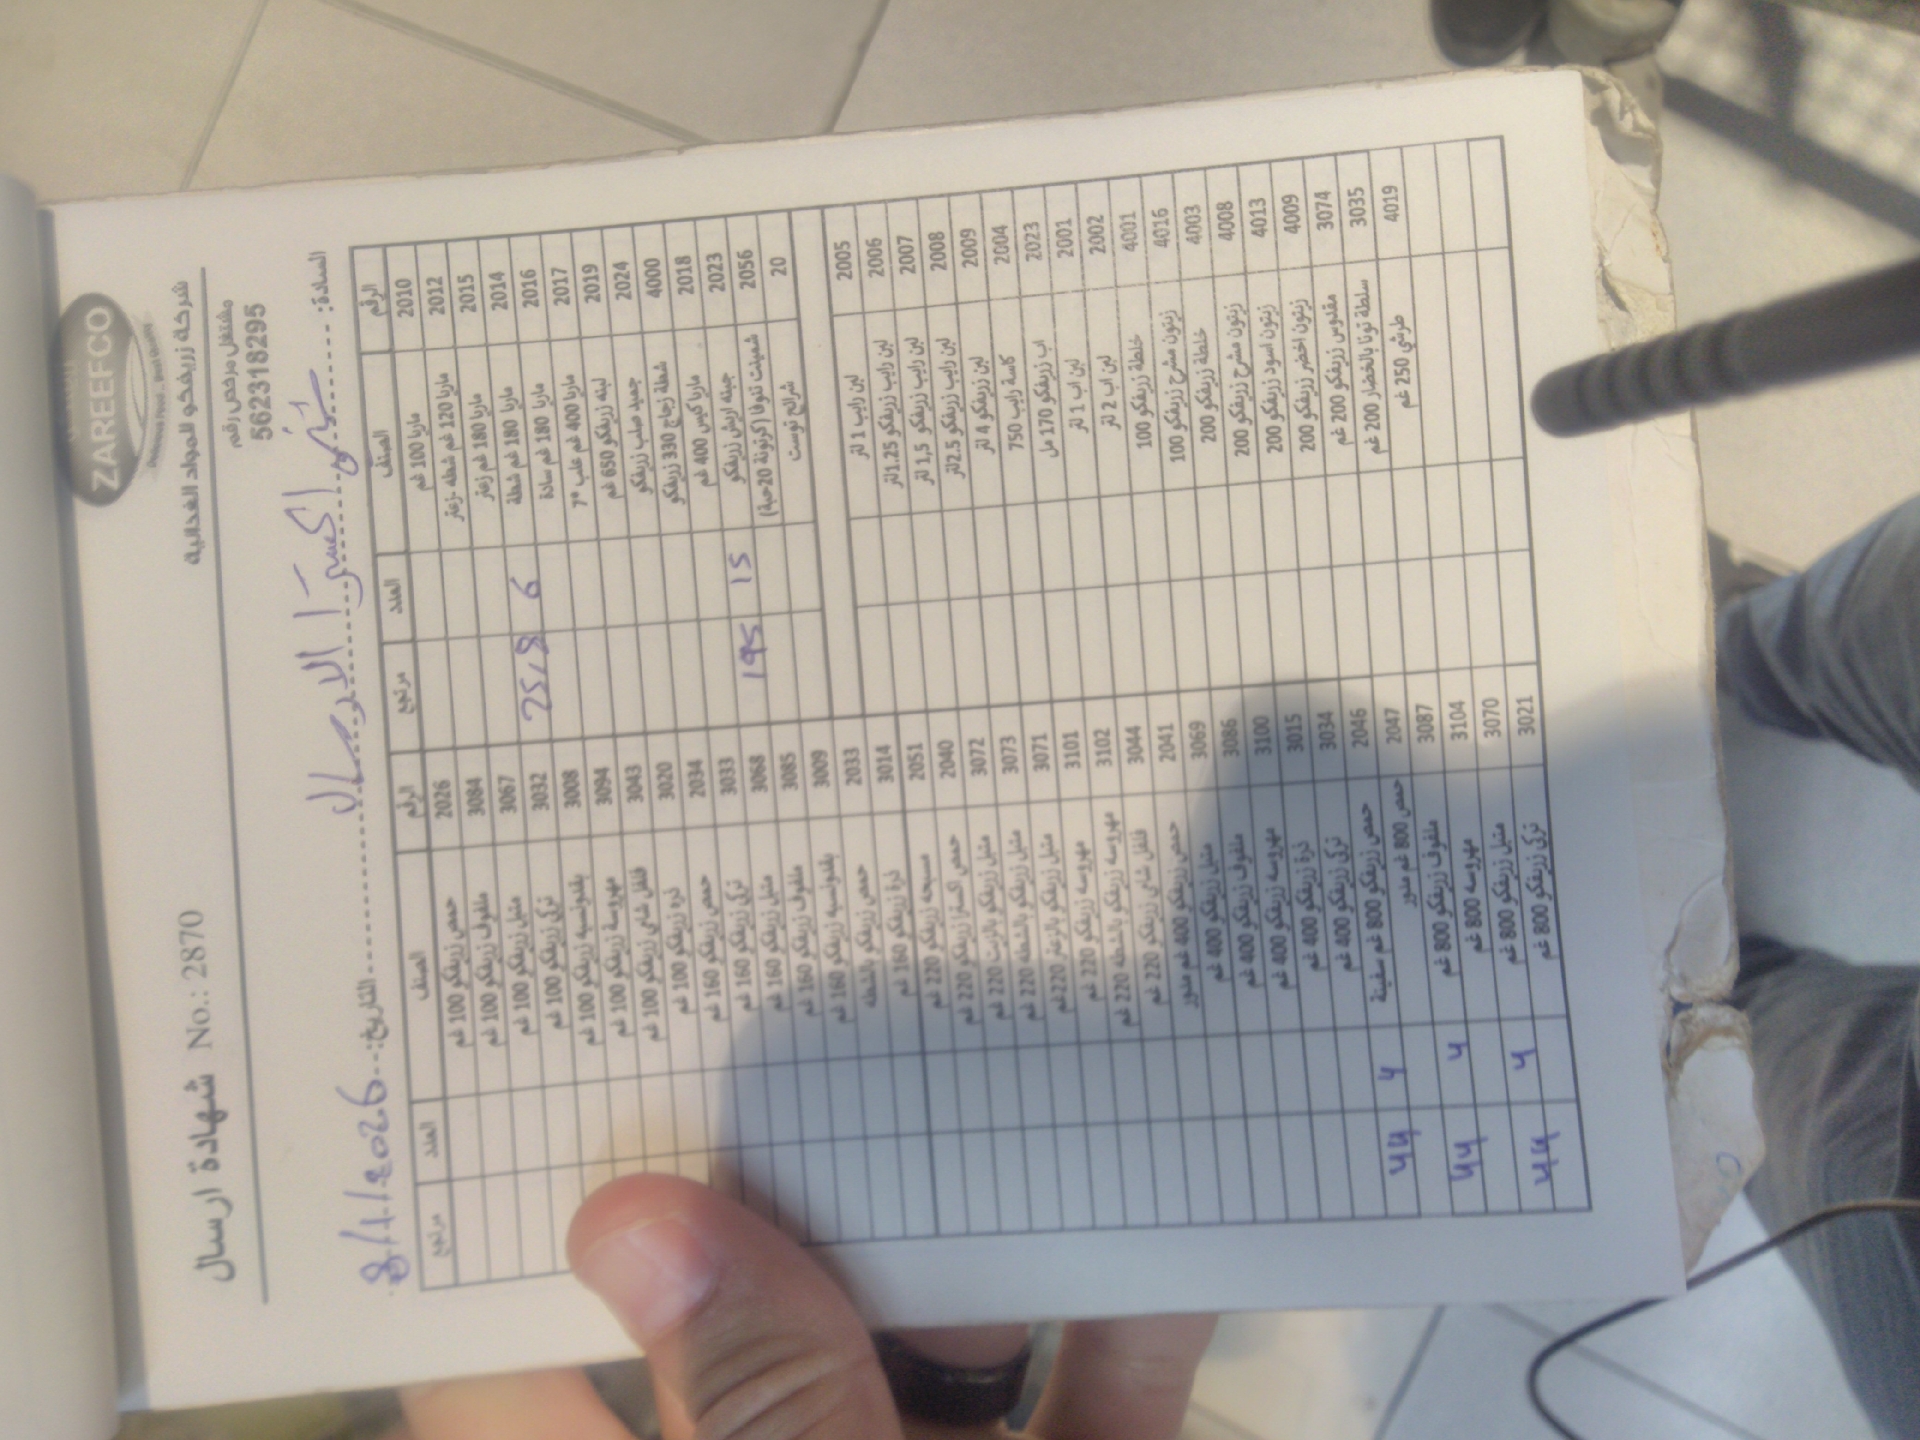 ZAREEFCO
Delicious Food .. Best Quality
شركة زريفكو للمواد الغذائية
مشتغل مرخص رقم
562318295
شهادة ارسال No.: 2870
السادة:
التاريخ: 8/1/2026
الرقم الصنف العدد مرتجع
2010 مارتا 100 غم
2012 مارتا 120 غم شطة -زعتر
2015 مارتا 180 غم زعتر
2014 مارتا 180 غم شطة
2016 مارتا 180 غم سادة 6 25,8
2017 مارتا 400 غم علب 7*
2019 لبنه زريفكو 650 غم
2024 جميد صلب زريفكو
4000 شطة زجاج 330 زريفكو
2018 مارتا كيس 400 غم
2023 جبنه اريش زريفكو
2056 شمينت تنوفا (كرتونة 20حبة) 15 195
20 شرائح توست
2005 لبن رايب 1 لتر
2006 لبن رايب زريفكو 1.25لتر
2007 لبن رايب زريفكو 1,5 لتر
2008 لبن رايب زريفكو 2.5لتر
2009 لبن زريفكو 4 لتر
2004 كاسة رايب 750
2023 اب زريفكو 170 مل
2001 لبن اب 1 لتر
2002 لبن اب 2 لتر
4001 خلطة زريفكو 100
4016 زيتون مشرح زريفكو 100
4003 خلطة زريفكو 200
4008 زيتون مشرح زريفكو 200
4013 زيتون اسود زريفكو 200
4009 زيتون اخضر زريفكو 200
3074 مقدوس زريفكو 200 غم
3035 سلطة تونا بالخضار 200 غم
4019 طرشي 250 غم
الرقم الصنف العدد مرتجع
2026 حمص زريفكو 100 غم
3084 ملفوف زريفكو 100 غم
3067 متبل زريفكو 100 غم
3032 تركي زريفكو 100 غم
3008 بقدونسيه زريفكو 100 غم
3094 مهروسة زريفكو 100 غم
3043 فلفل شامي زريفكو 100 غم
3020 ذره زريفكو 100 غم
2034 حمص زريفكو 160 غم
3033 تركي زريفكو 160 غم
3068 متبل زريفكو 160 غم
3085 ملفوف زريفكو 160 غم
3009 بقدونسيه زريفكو 160 غم
2033 حمص زريفكو بالشطه
3014 ذرة زريفكو 160 غم
2051 مسبحه زريفكو 220 غم
2040 حمص اكسترا زريفكو 220 غم
3072 متبل زريفكو بالزيت 220 غم
3073 متبل زريفكو بالشطه 220 غم
3071 متبل زريفكو بالزعتر 220غم
3101 مهروسه زريفكو 220 غم
3102 مهروسه زريفكو بالشطه 220 غم
3044 فلفل شامي زريفكو 220 غم
2041 حمص زريفكو 400 غم مدور
3069 متبل زريفكو 400 غم
3086 ملفوف زريفكو 400 غم
3100 مهروسه زريفكو 400 غم
3015 ذرة زريفكو 400 غم
3034 تركي زريفكو 400 غم
2046 حمص زريفكو 800 غم سفينة 4 44
2047 حمص 800 غم مدور
3087 ملفوف زريفكو 800 غم 4 44
3104 مهروسه 800 غم
3070 متبل زريفكو 800 غم 4 44
3021 تركي زريفكو 800 غم